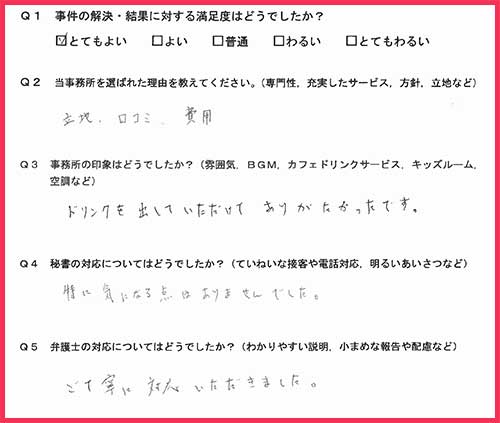 Q1 事件の解決・結果に対する満足度はどうでしたか？
☑とてもよい □よい □普通 □わるい □とてもわるい
Q2 当事務所を選ばれた理由を教えてください。（専門性，充実したサービス，方針，立地など）
立地、口コミ、費用
Q3 事務所の印象はどうでしたか？（雰囲気，BGM，カフェドリンクサービス，キッズルーム，
空調など）
ドリンクを出していただけてありがたかったです。
Q4 秘書の対応についてはどうでしたか？（ていねいな接客や電話対応，明るいあいさつなど）
特に気になる点はありませんでした。
Q5 弁護士の対応についてはどうでしたか？（わかりやすい説明，小まめな報告や配慮など）
ごて寧に対応いただきました。